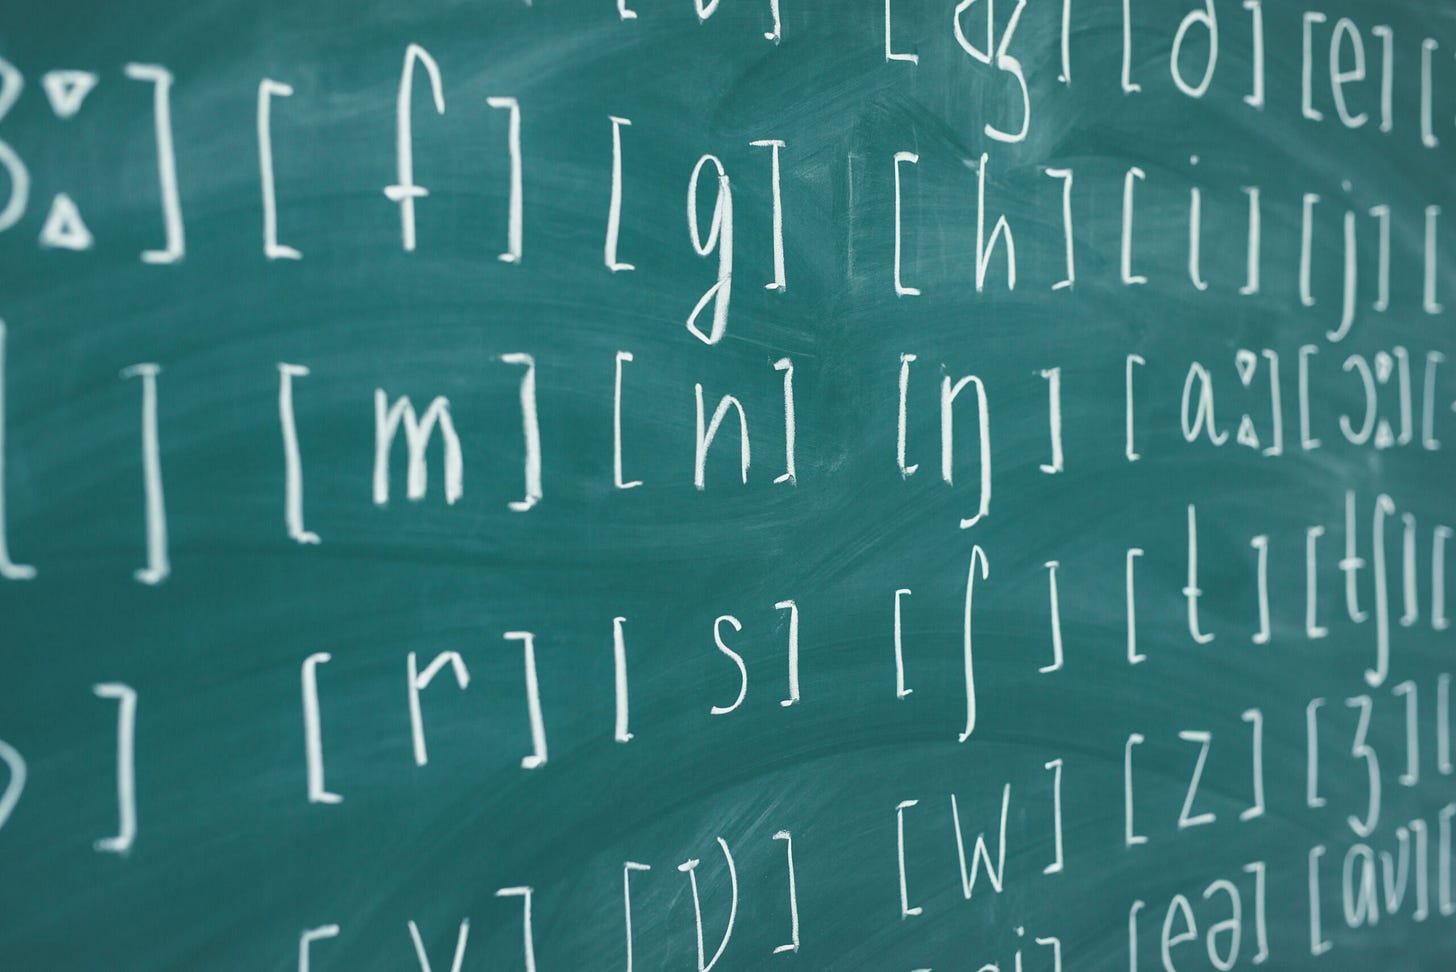 [dʒ] [ð] [e]
ɜː] [f] [g] [h] [i] [j]
[m] [n] [ŋ] [ɑː] [ɔː]
[r] [s] [ʃ] [t] [tʃ]
[w] [z] [ʒ]
[eə] [aʊ]